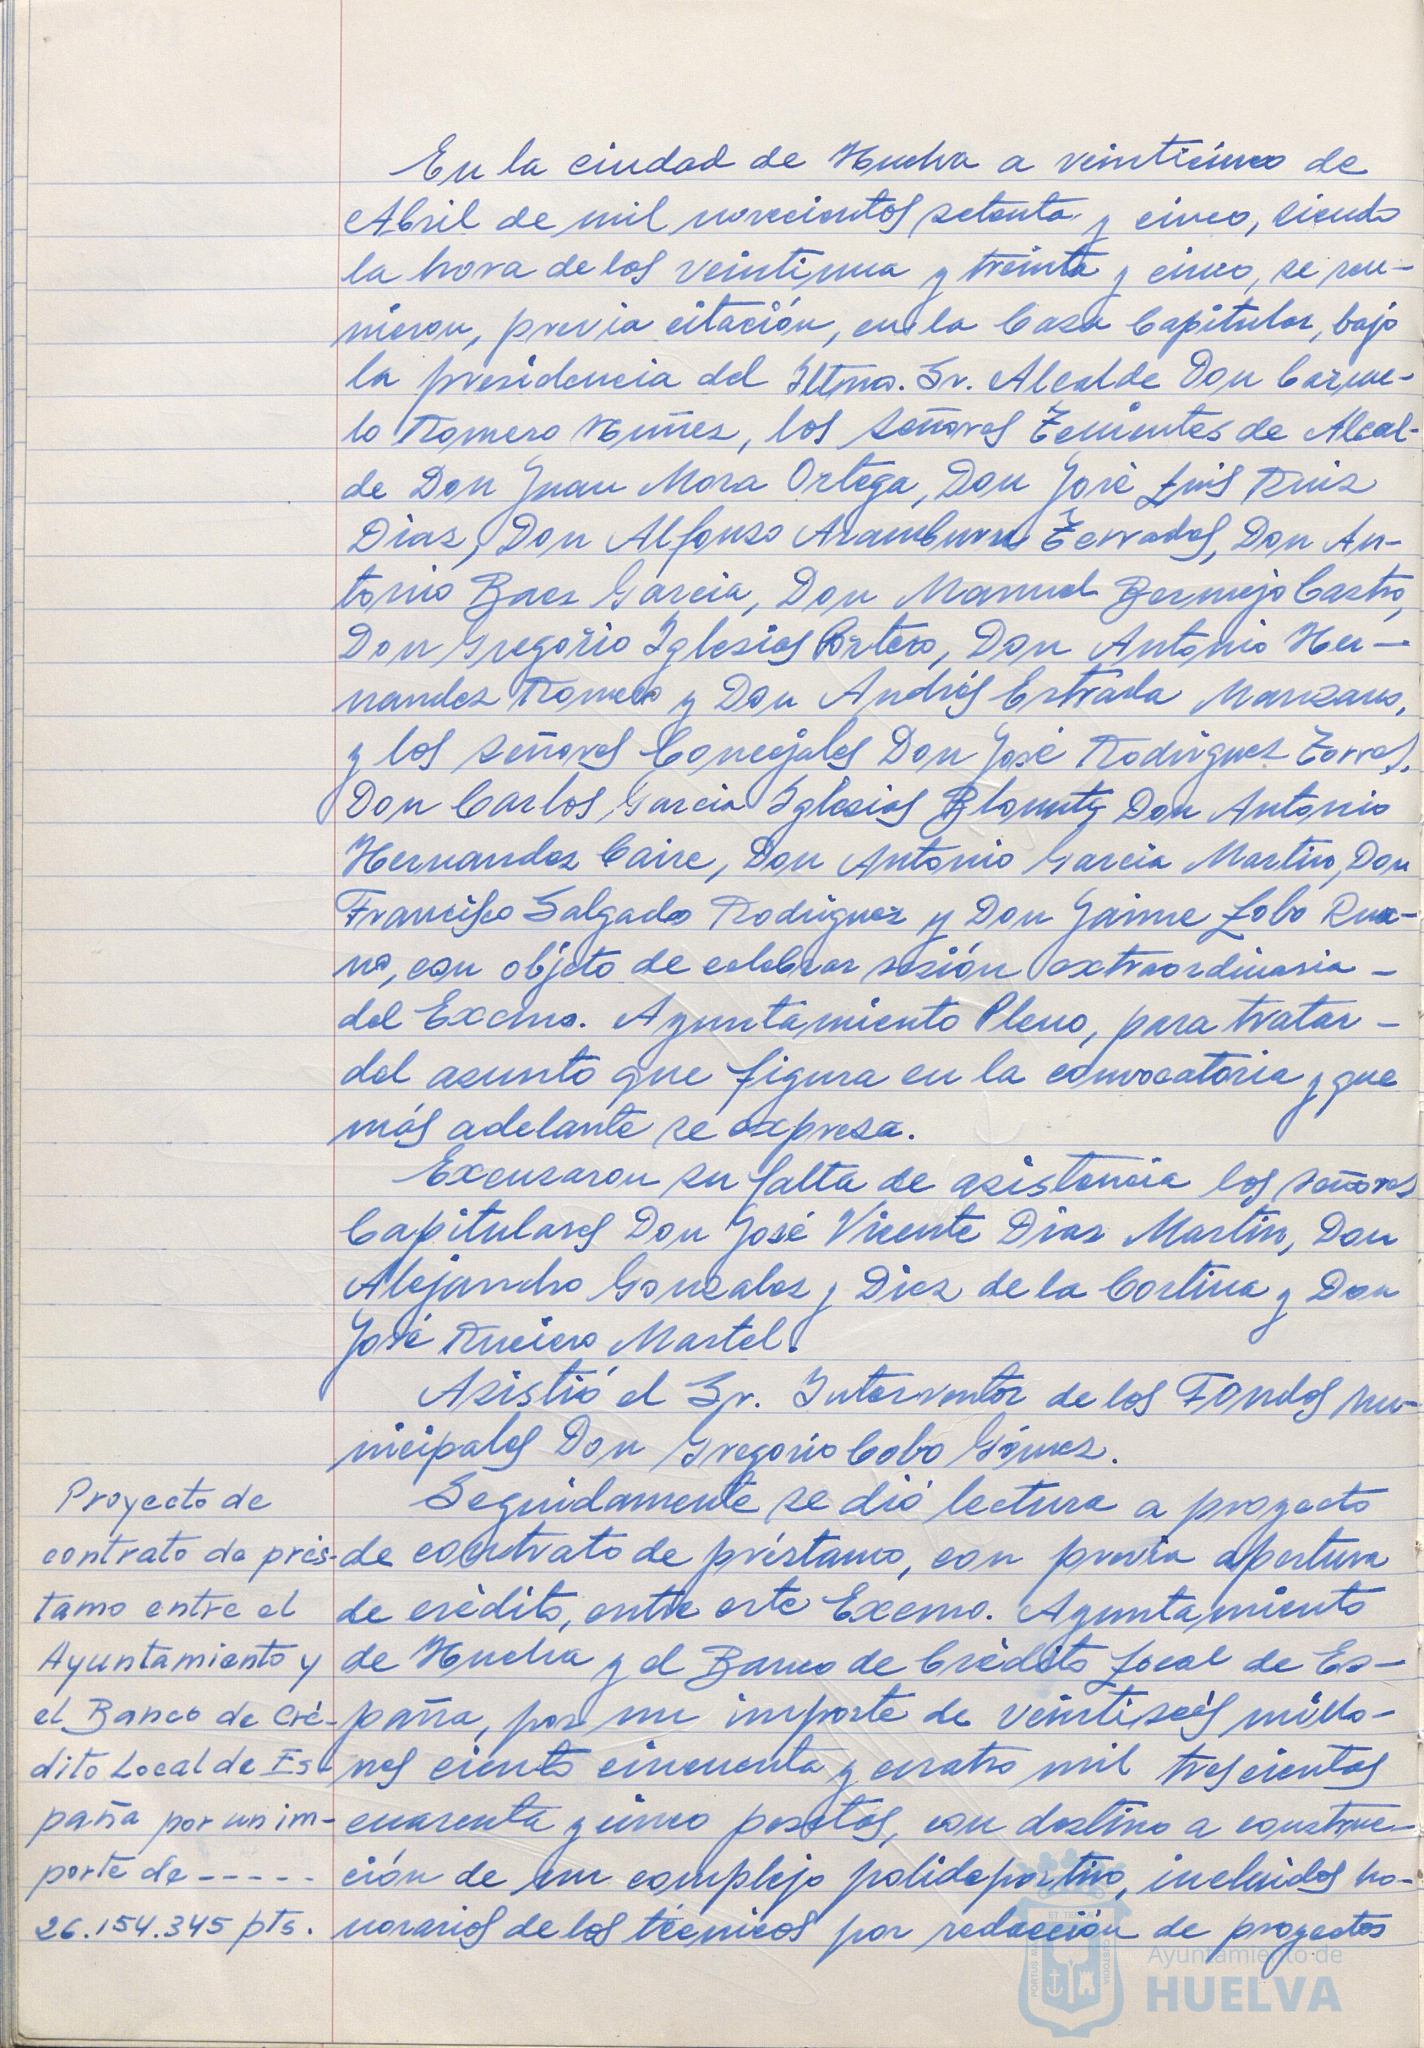 En la ciudad de Huelva a veinticinco de
Abril de mil novecientos setenta y cinco, siendo
la hora de las veintiuna y treinta y cinco, se reu-
nieron, previa citación, en la Casa Capitular, bajo
la presidencia del Iltmo. Sr. Alcalde Don Carme-
lo Romero Núñez, los señores Tenientes de Alcal-
de Don Juan Mora Ortega, Don José Luis Ruiz
Diaz, Don Alfonso Aramburu Terrades, Don An-
tonio Baez Garcia, Don Manuel Bermejo Castro,
Don Gregorio Iglesias Portero, Don Antonio Her-
nandez Romero y Don Andrés Estrada Manzano,
y los señores Concejales Don José Rodriguez Torres,
Don Carlos Garcia Iglesias Don Antonio
Hernandez Caire, Don Antonio Garcia Martin, Don
Francisco Salgado Rodriguez y Don Jaime Lobo Rua-
no, con objeto de celebrar sesión extraordinaria -
del Excmo. Ayuntamiento Pleno, para tratar -
del asunto que figura en la convocatoria y que
más adelante se expresa.
Excusaron su falta de asistencia los señores
Capitulares Don José Vicente Diaz Martin, Don
Alejandro Gonzalez y Diez de la Cortina y Don
José Ruciero Martel.
Asistió el Sr. Interventor de los Fondos mu-
nicipales Don Gregorio Cobo Gómez.
Proyecto de
contrato de prés-
tamo entre el
Ayuntamiento y
el Banco de Cré-
dito Local de Es-
paña por un im-
porte de -----
26.154.345 pts.
Seguidamente se dió lectura a proyecto
de contrato de préstamo, con previa apertura
de crédito, entre este Excmo. Ayuntamiento
de Huelva y el Banco de Crédito Local de Es-
paña, por un importe de veintiséis millo-
nes ciento cincuenta y cuatro mil trescientas
cuarenta y cinco pesetas, con destino a construc-
ción de un complejo polideportivo, incluidos ho-
norarios de los técnicos por redacción de proyectos
Ayuntamiento de
HUELVA